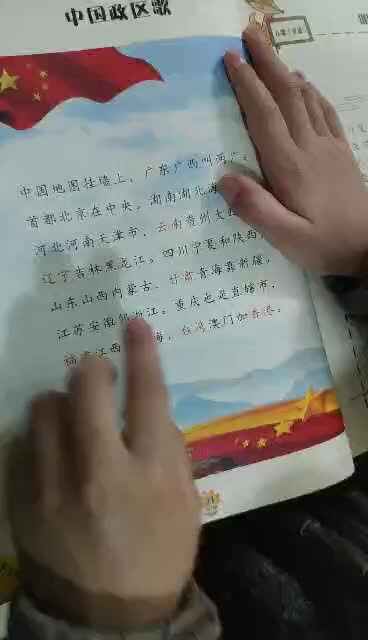 中国政区歌
中国地图挂墙上，广东广西叫两广。
首都北京在中央，湖南湖北
河北河南天津市，云南贵州
辽宁吉林黑龙江。四川宁夏和陕西
山东山西内蒙古，甘肃青海靠新疆，
江苏安徽邻浙江。重庆也是直辖市，
江西 海，台湾澳门加香港。